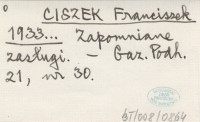 CISZEK Franciszek
1933... Zapomniane
zasługi. — Gaz. Podh.
21, nr 30.
BT/008/0864